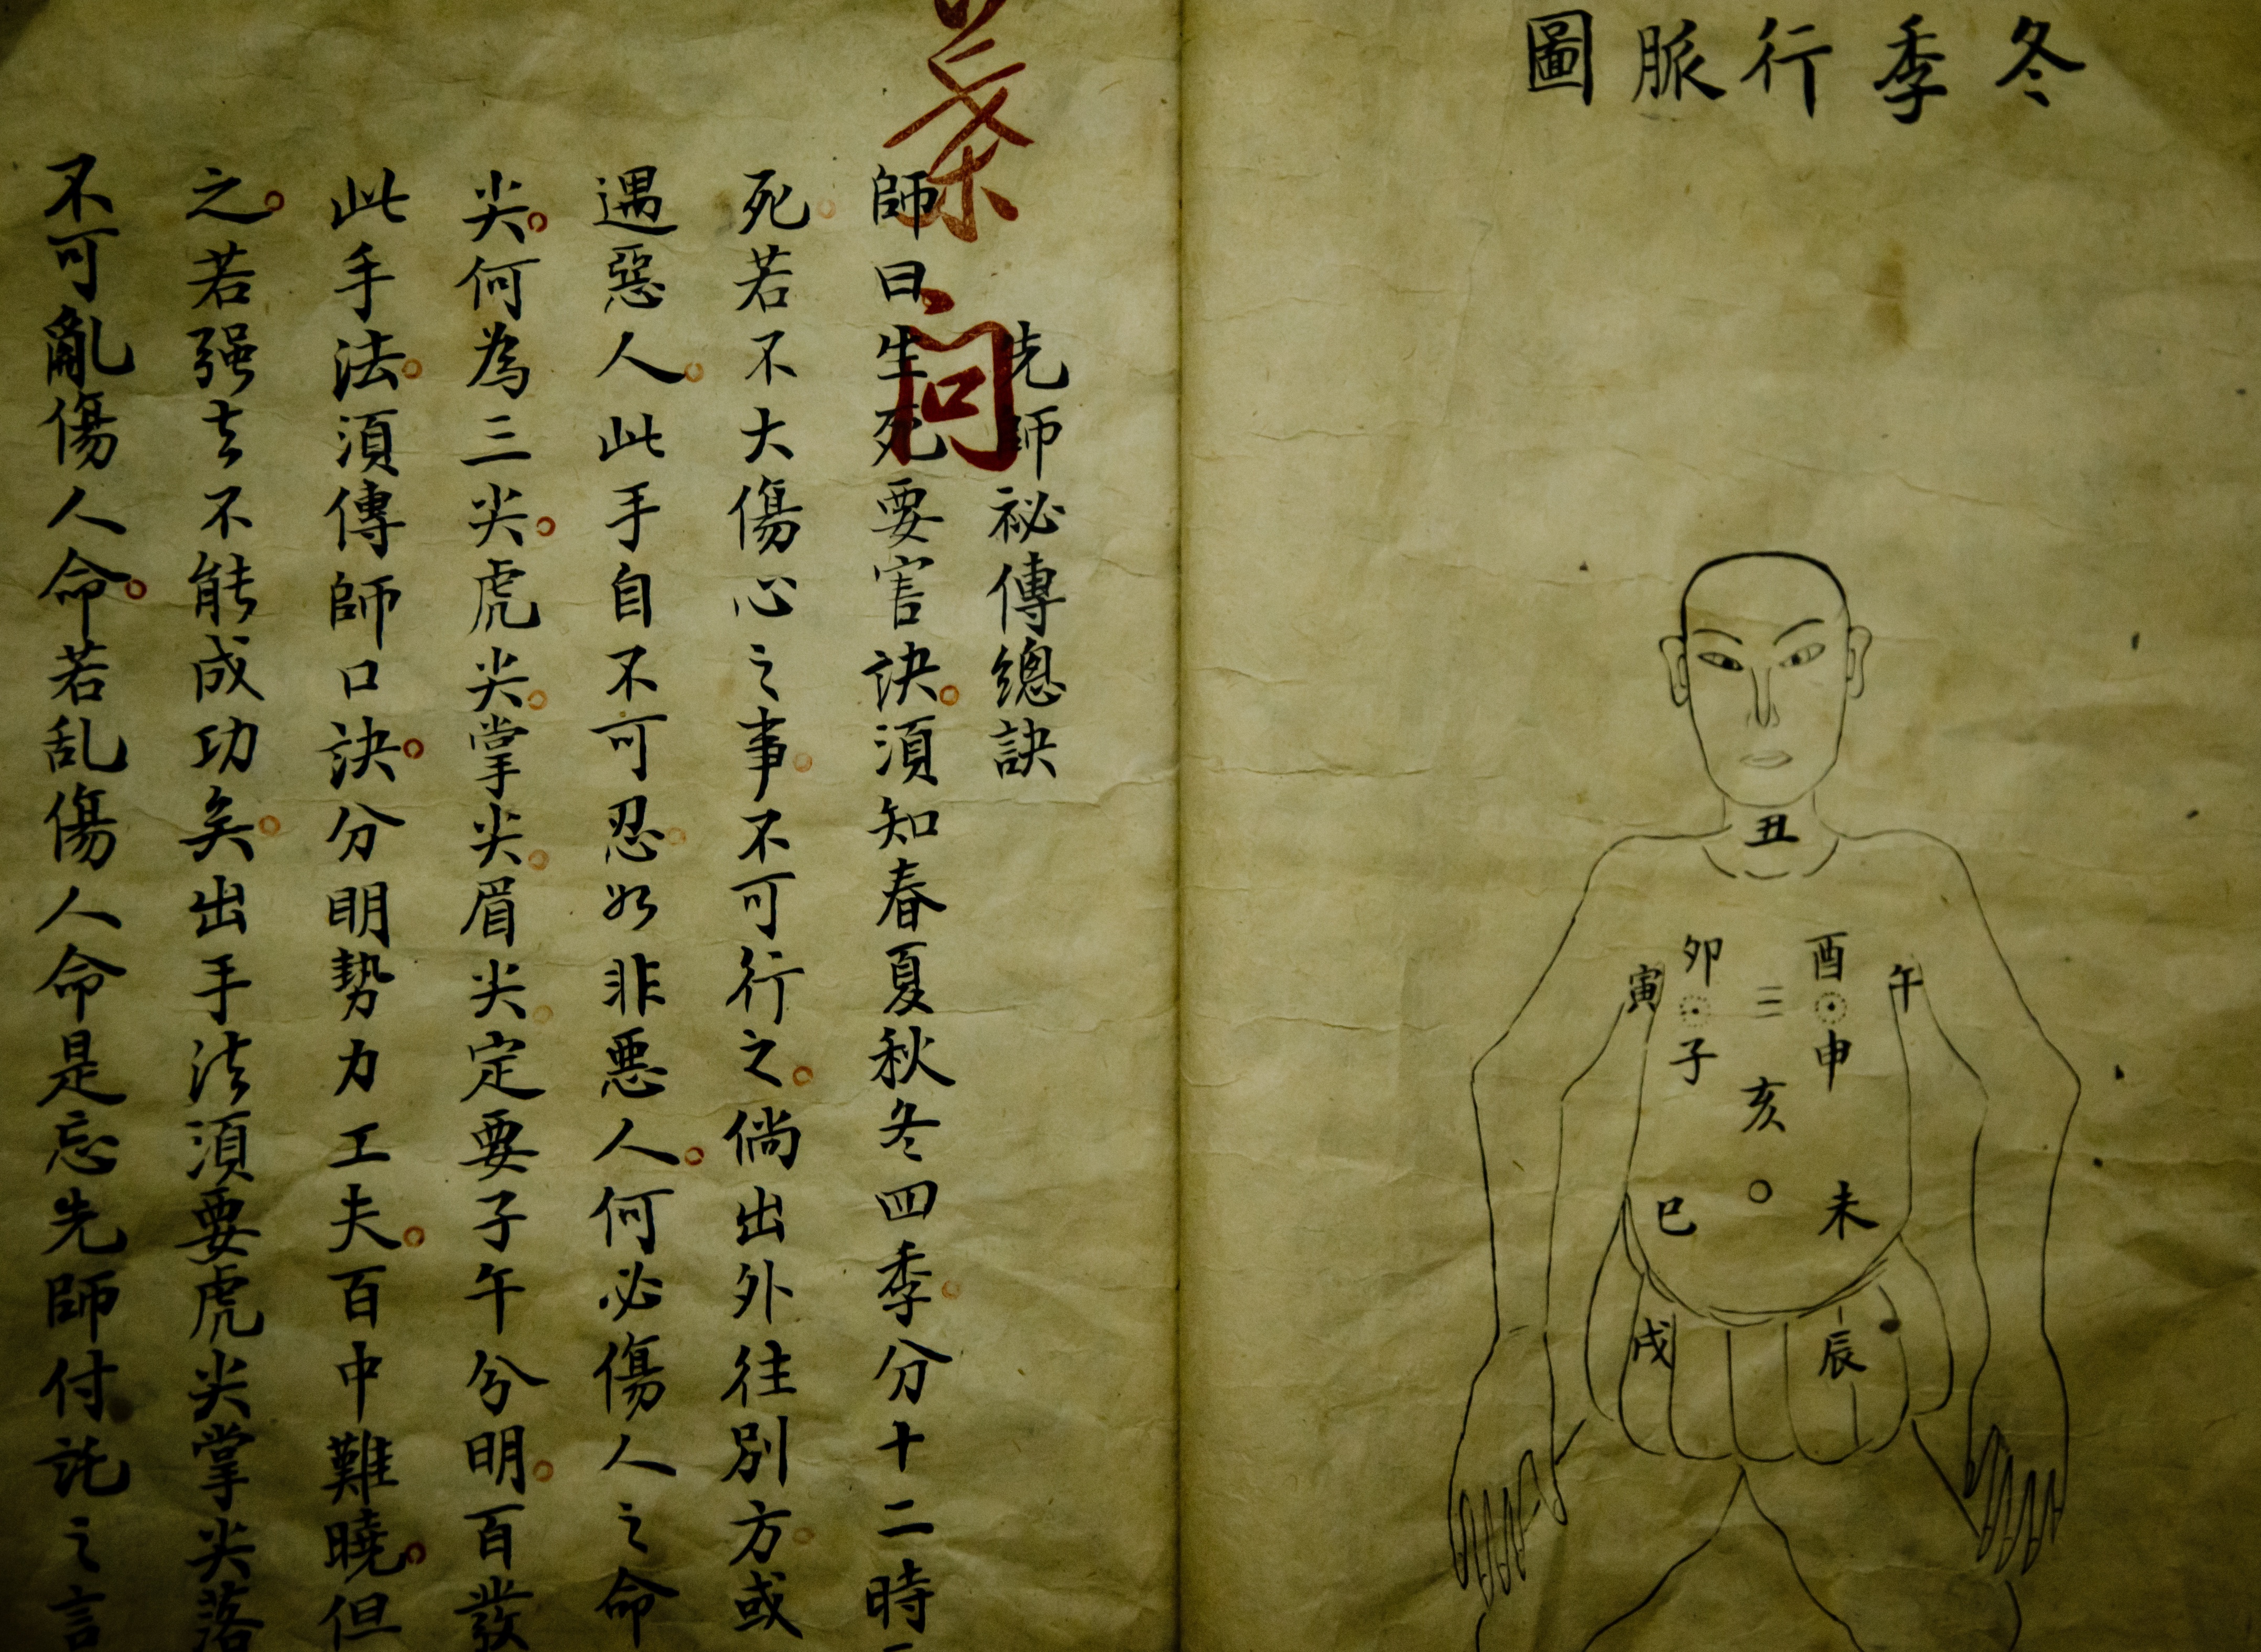 冬季行脈圖
丑
卯 酉
寅 午
三
子 申
亥
巳 未
戌 辰
茶
问
先師祕傳總訣
師曰生死要害訣須知春夏秋冬四季分十二時
死若不大傷心之事不可行之倘出外往別方或
遇惡人此手自不可忍如非悪人何必傷人之命
尖何為三尖虎尖掌尖眉尖定要子午分明百發
此手法須傳師口訣分明勢力工夫百中難曉但
之若强去不能成功矣出手法須要虎尖掌尖落
不可亂傷人命若乱傷人命是忘先師付託之言